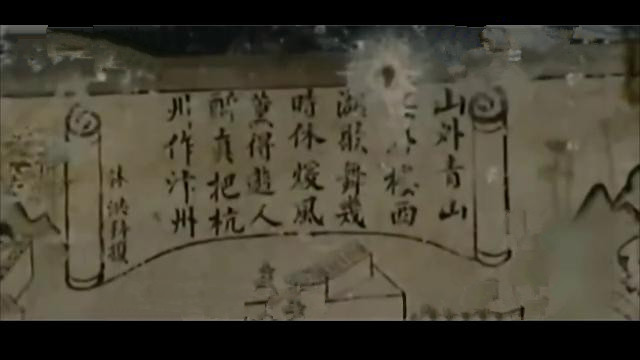 山外青山
外樓西
湖歌舞幾
時休煖風
薰得遊人
醉直把杭
州作汴州